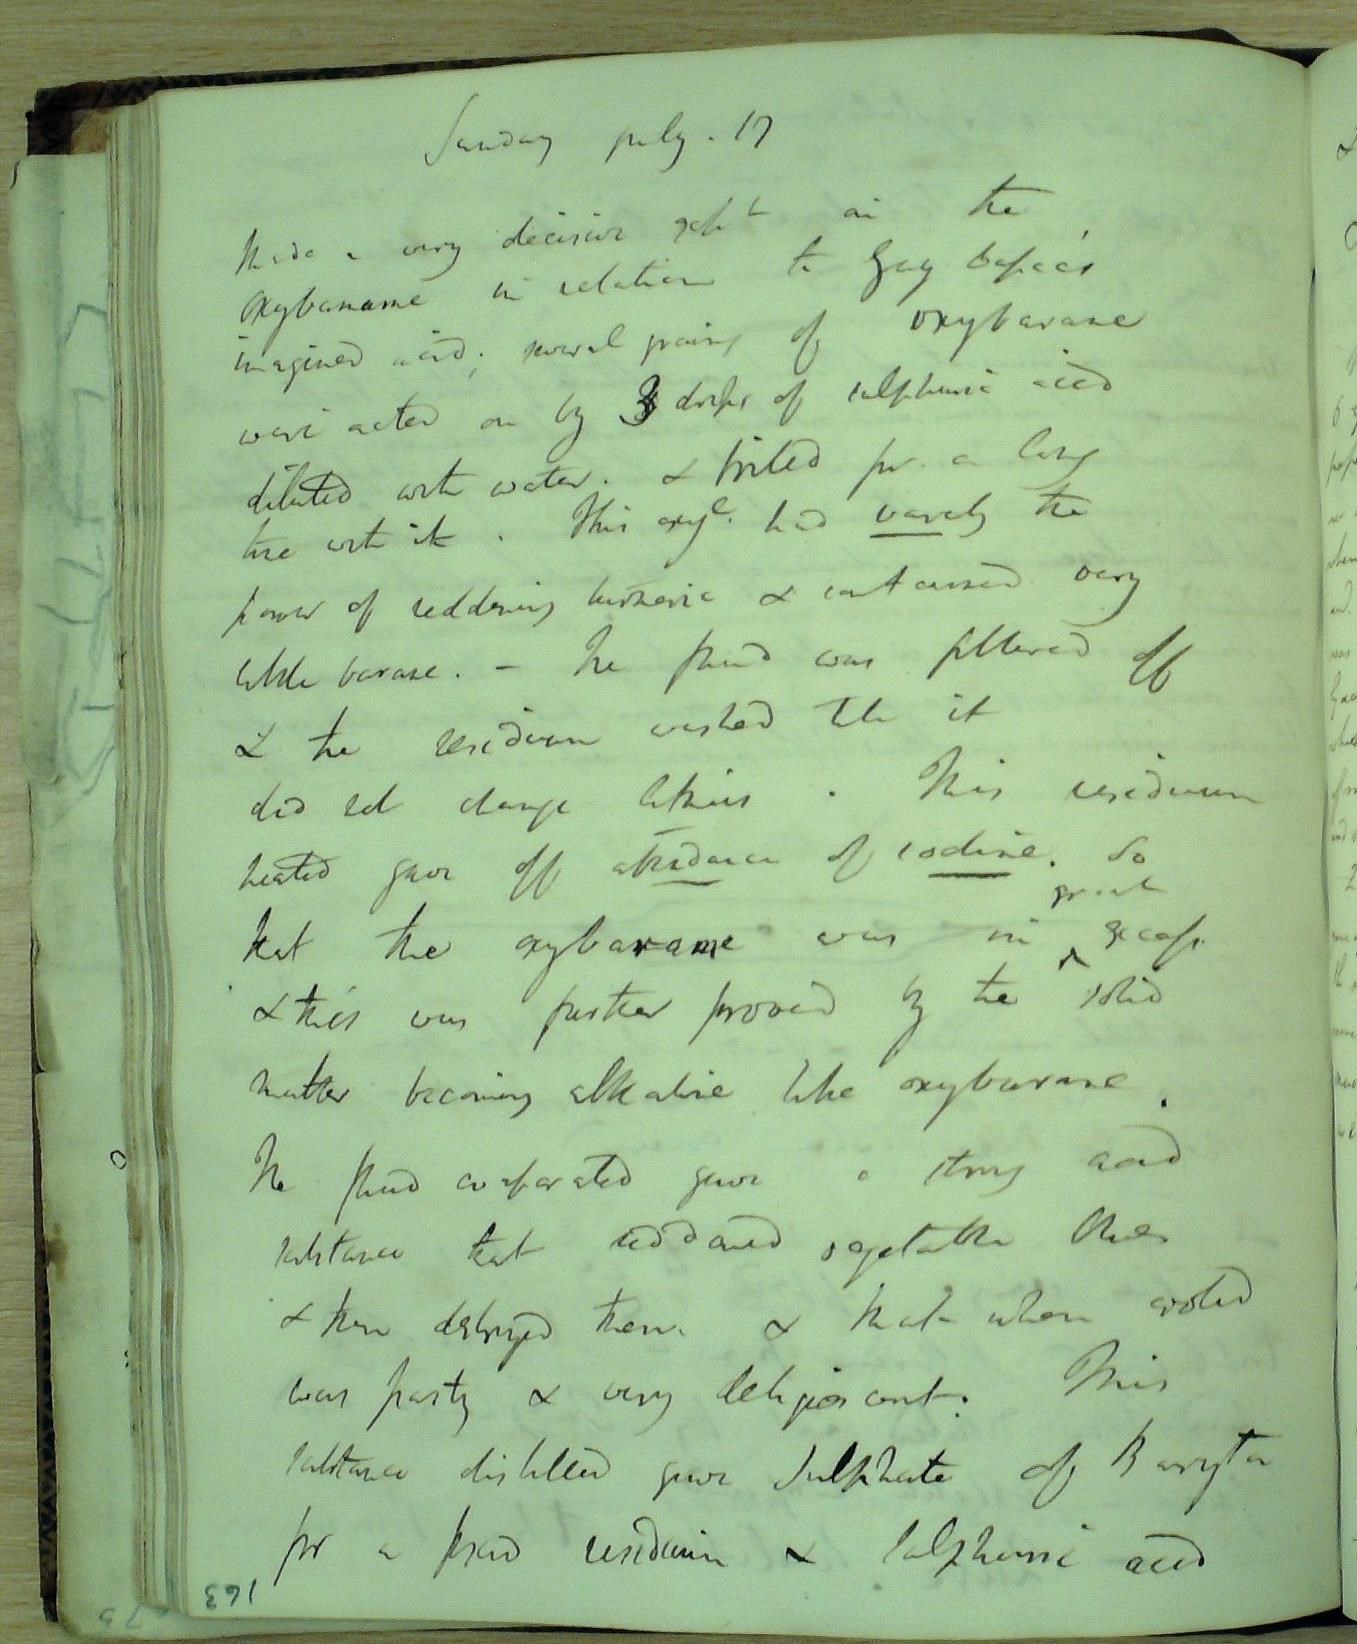 Sunday July. 17
Made a very decisive expt on the
oxybaname in relation to Gay Lussac's
imagined acid; several grains of oxybarane
were acted on by 3 drops of sulphuric acid
diluted with water. & boiled for a long
time with it. This oxye. had barely the
power of reddening turmeric & contained very
little barane. - The fluid was filtered off
& the residuum washed till it
did not change litmus. This residuum
heated gave off abundance of iodine. So
that the oxybarame was in great excess
& this was further proved by the solid
matter becoming alkaline like oxybarane.
The fluid evaporated gave a strong acid
substance that reddened vegetable blues
& then destroyed them. & that when cooled
was pasty & very deliquescent. This
substance distilled gave Sulphate of Baryta
for a fixed residuum & Sulphuric acid
163